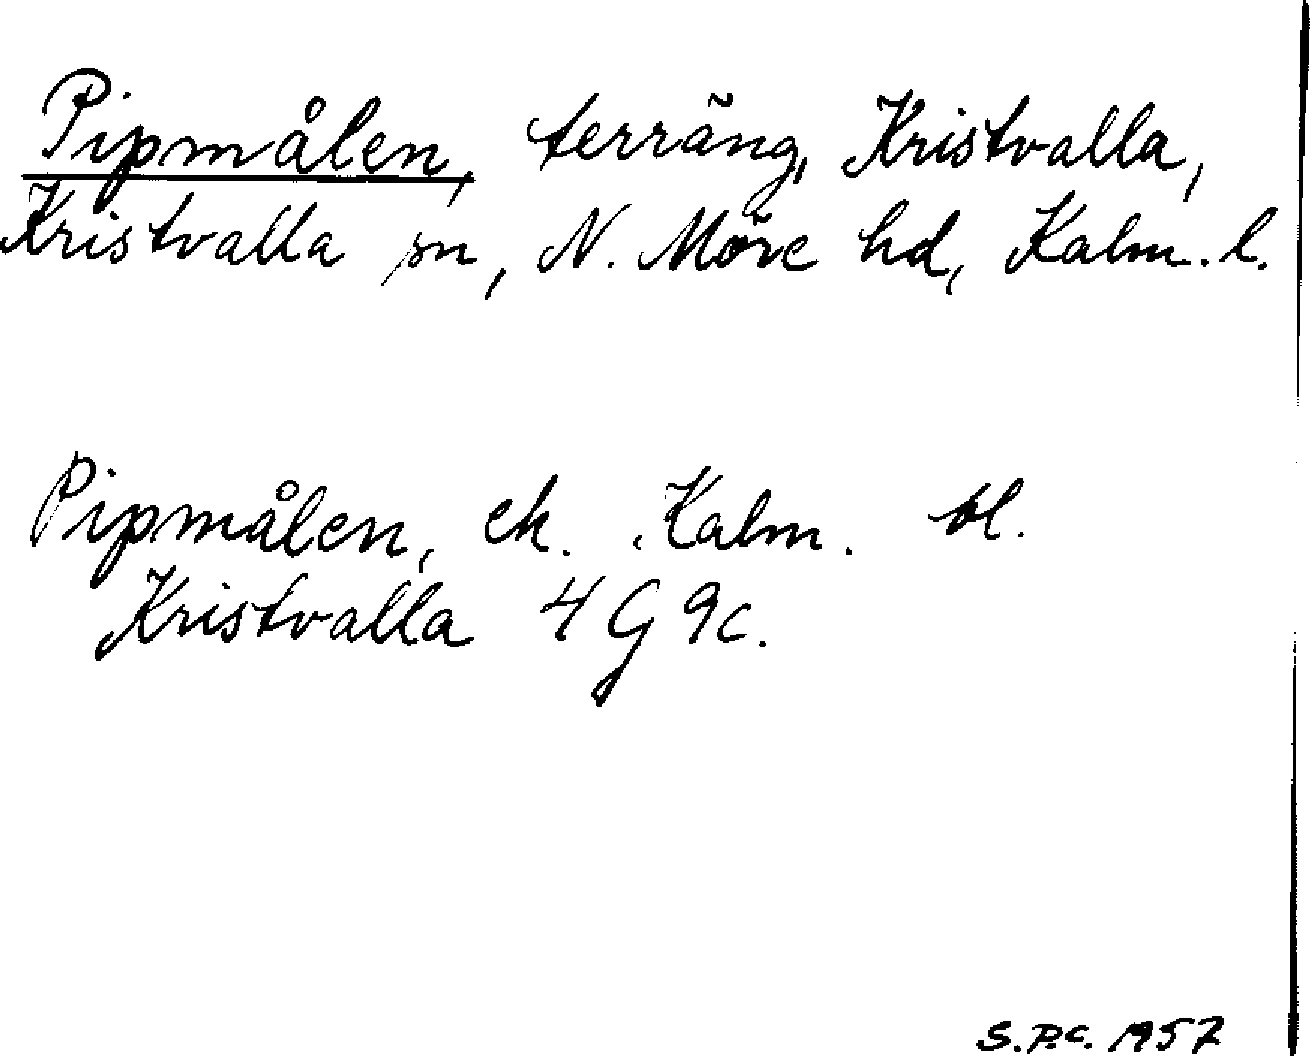 Pipmålen, terräng, Kristvalla,
Kristvalla sn, N. Möre hd, Kalm. l.
Pipmålen, ek. Kalm. bl.
Kristvalla 4 G 9c.
S.P.C. 1957